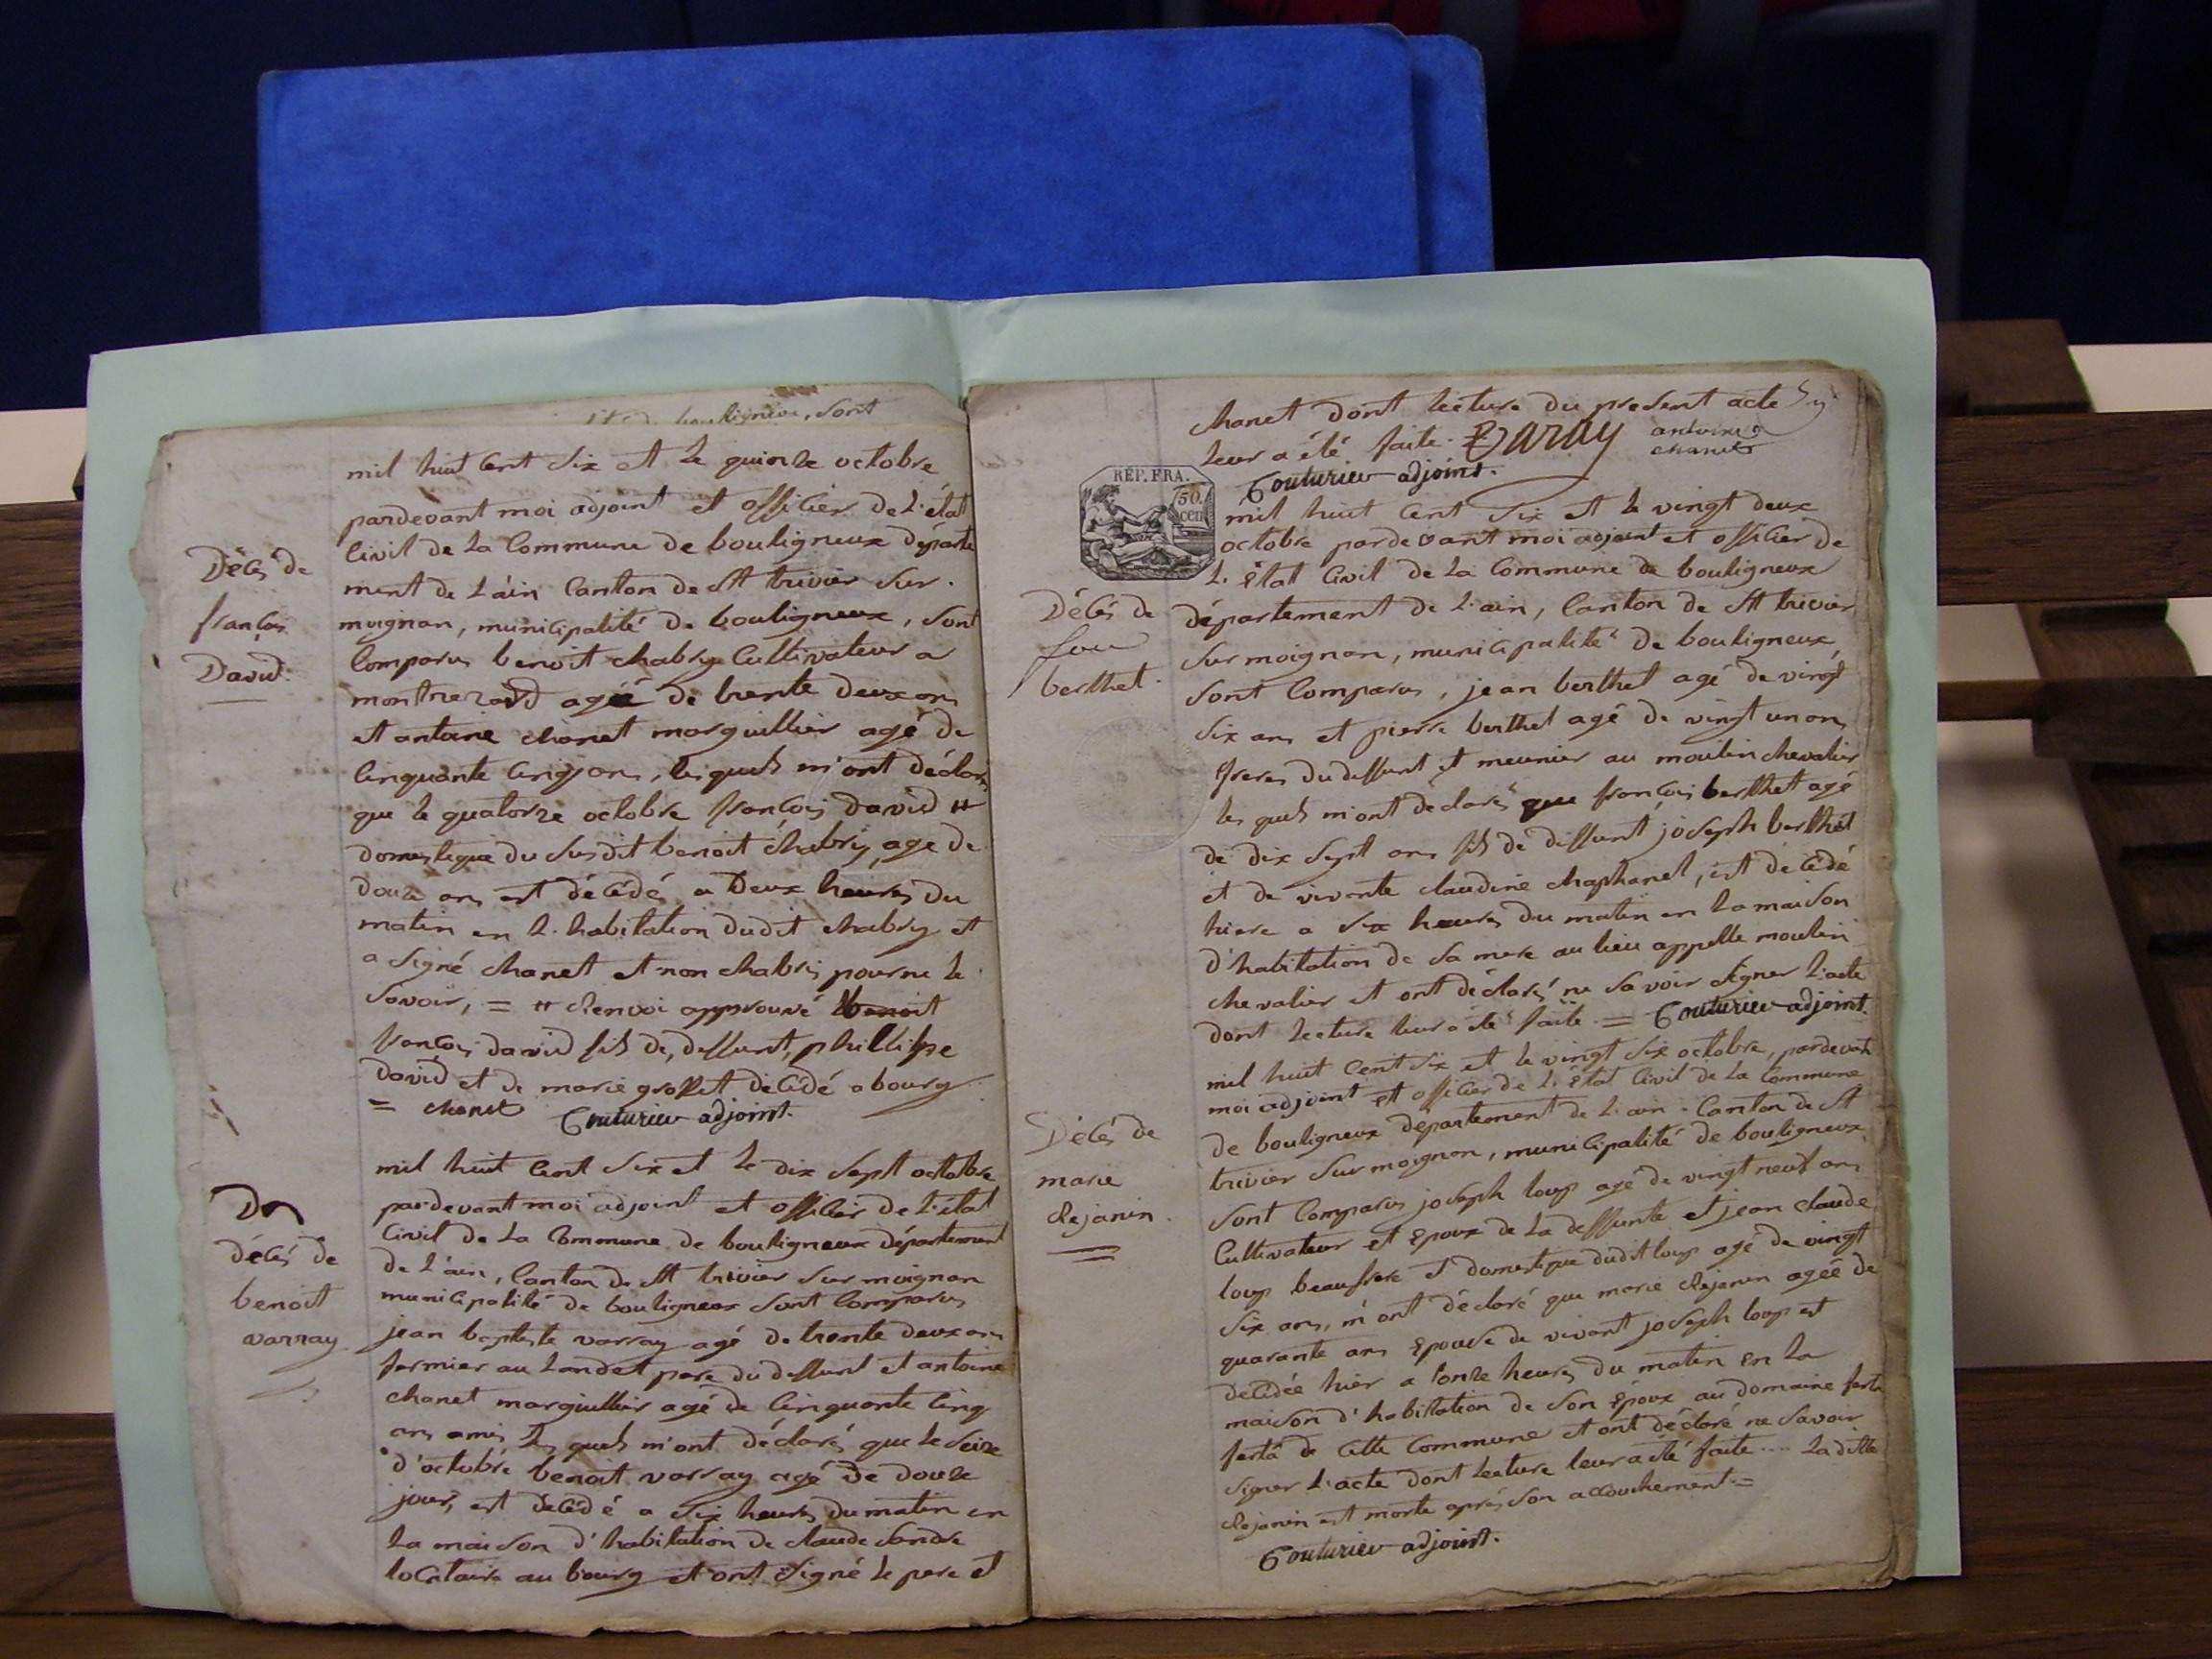 bouligneux, sont
mil huit Cent Six et le quinze octobre
pardevant moi adjoint et officier de L'état
Civil de La Commune de bouligneux départe
ment de L'ain Canton de St trivier Sur
moignan, municipalité de bouligneux, Sont
Comparus benoit chabry Cultivateur a
agé de trente deux ans
et antoine chanet marguillier agé de
Cinquante Cinq ans, lesquels m'ont déclaré
que le quatorze octobre françois david #
domestique du Susdit benoit chabry agé de
douze ans est décédé a Deux heures du
matin en L'habitation dudit chabry et
a Signé chanet et non chabri pour ne le
Savoir, = # Renvoi approuvé benoit
françois david fils de, deffunt, phillippe
david et de marie décédé a bourg
= chanet Couturier adjoint.
Décés de
françois
David.
mil huit Cent Six et Le dix Sept octobre
pardevant moi adjoint et officier de L'état
Civil de La Commune de bouligneux département
De L'ain, Canton de St trivier Sur moignan
municipalité de bouligneux Sont Comparus
jean baptiste varray agé de trente deux ans
fermier au Landet pere du deffunt et antoine
chanet marguillier agé de Cinquante Cinq
ans amis Les quels m'ont déclaré que le Seize
d'octobre benoit varray agé De douze
jours, est decédé a Six heures du matin en
La maison d'habitation de claude Sandre
locataire au bourg et ont Signé le pere et
De
décés de
benoit
varray
chanet dont lecture du present acte
leur a été faite. Varay antoine
chanet
Couturier adjoint.
REP. FRA.
50.
cen.
mil huit Cent Six et le vingt deux
octobre pardevant moi adjoint et officier de
L'État Civil de La Commune de bouligneux
département de L'ain, Canton de St trivier
Sur moignan, municipalité de bouligneux,
Sont Comparus, jean berthet agé de vingt
Six ans et pierre berthet agé de vingt un ans
freres du deffunt et meunier au moulin chevalier
les quels m'ont déclaré que françois berthet agé
de dix Sept ans fils de deffunt joseph berthet
et de vivante claudine chaphanel, est décédé
hiere a Six heures du matin en La maison
d'habitation de Sa mere au lieu appellé moulin
chevalier et ont déclaré ne Savoir Signer L'acte
dont Lecture leur a été faite = Couturier adjoint.
Décés de
berthet.
mil huit Cent Six et le vingt Six octobre, pardevant
moi adjoint et officier de L'État Civil de La Commune
de bouligneux département de L'ain. Canton de St
trivier Sur moignan, municipalité de bouligneux,
Sont Comparus joseph loup agé de vingt neuf ans
Cultivateur et Epoux de La deffunte et jean claude
loup beaufrere et domestique dudit loup agé de vingt
Six ans, m'ont déclaré que marie Rejanin agée de
quarante ans Epouse de vivant joseph loup est
decédée hier a l'onze heures du matin en La
maison d'habitation de Son Époux au domaine
de Cette Commune et ont déclaré ne Savoir
Signer L'acte dont lecture leur a été faite .... La ditte
Rejanin est morte aprés Son accouchement =
Couturier adjoint.
Décés de
marie
Rejanin.